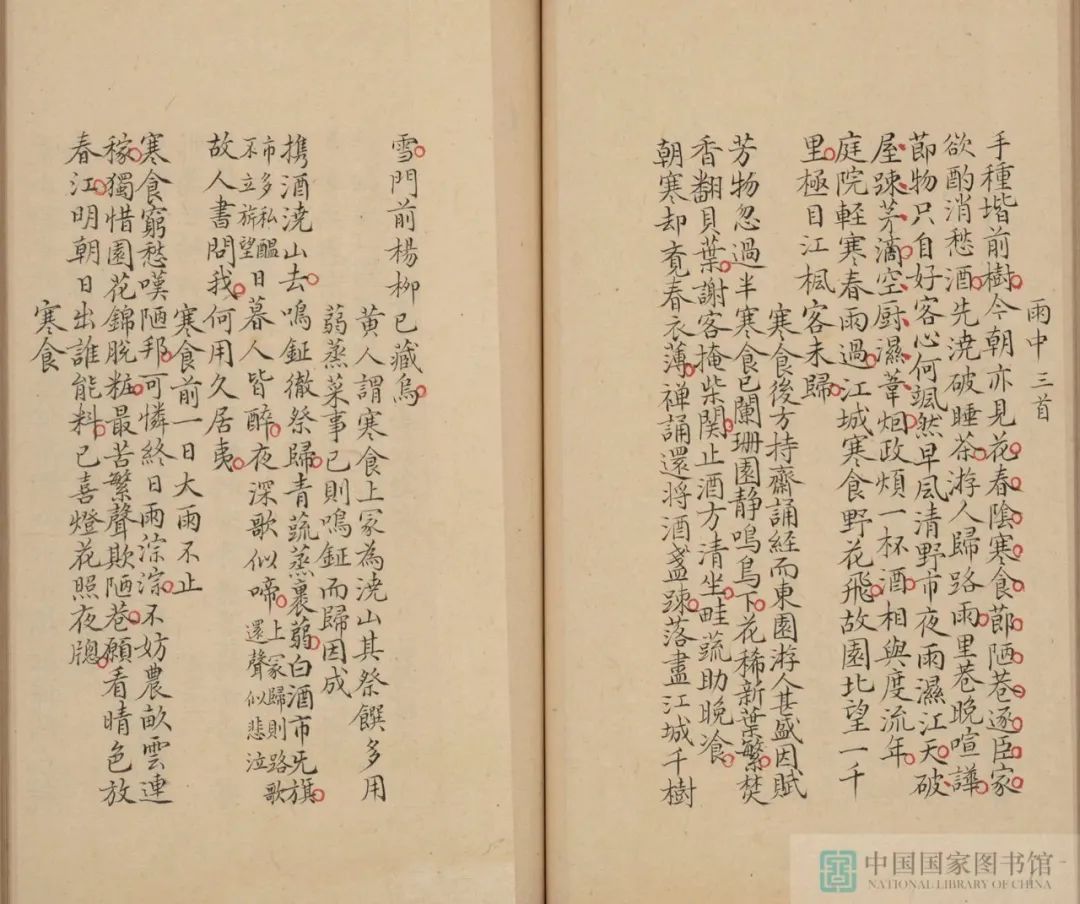 雨中三首
手種堦前樹今朝亦見花春陰寒食節陋巷逐臣家
欲酌消愁酒先澆破睡茶游人歸路雨里巷晚喧譁
節物只自好客心何颯然早風清野市夜雨濕江天破
屋踈茅滴空厨濕葦烟政煩一杯酒相與度流年
庭院輕寒春雨過江城寒食野花飛故園北望一千
里極目江楓客未歸
寒食後方持齋誦經而東園游人甚盛因賦
芳物忽過半寒食已闌珊園静鳴鳥下花稀新葉繁焚
香翻貝葉謝客掩柴関止酒方清坐畦蔬助晚飡
朝寒却覔春衣薄禪誦還將酒盞踈落盡江城千樹
雪門前楊柳已藏烏
黄人謂寒食上冢為澆山其祭饌多用
蒻蒸菜事已則鳴鉦而歸因成
携酒澆山去鳴鉦徹祭歸青蔬蒸裹蒻白酒市旡旗
市多私醖
不立旂望
日暮人皆醉夜深歌似啼
上冢歸則路歌
還聲似悲泣
故人書問我何用久居夷
寒食前一日大雨不止
寒食窮愁嘆陋邦可憐終日雨淙淙不妨農畝雲連
稼獨惜園花錦脱粧最苦繁聲欺陋巷願看晴色放
春江明朝日出誰能料已喜燈花照夜牕
寒食
中国国家图书馆
NATIONAL LIBRARY OF CHINA